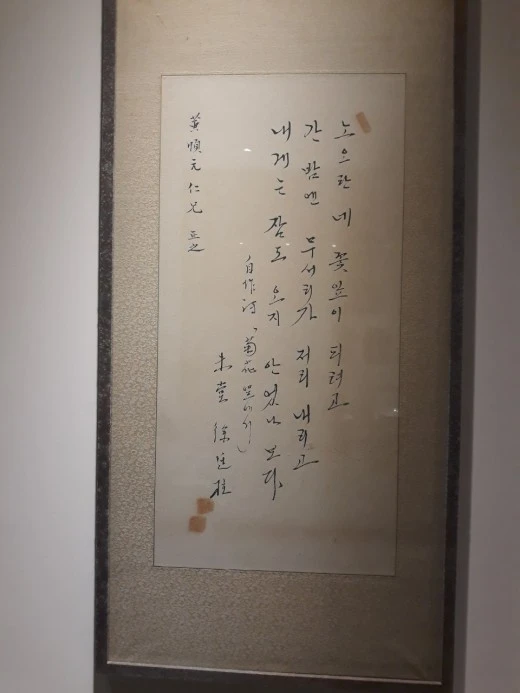 노오란 네 꽃잎이 피려고
간 밤엔 무서리가 저리 내리고
내게는 잠도 오지 안었나 보다.
自作詩「菊花옆에서」
未堂 徐廷柱
黃順元仁兄 正之